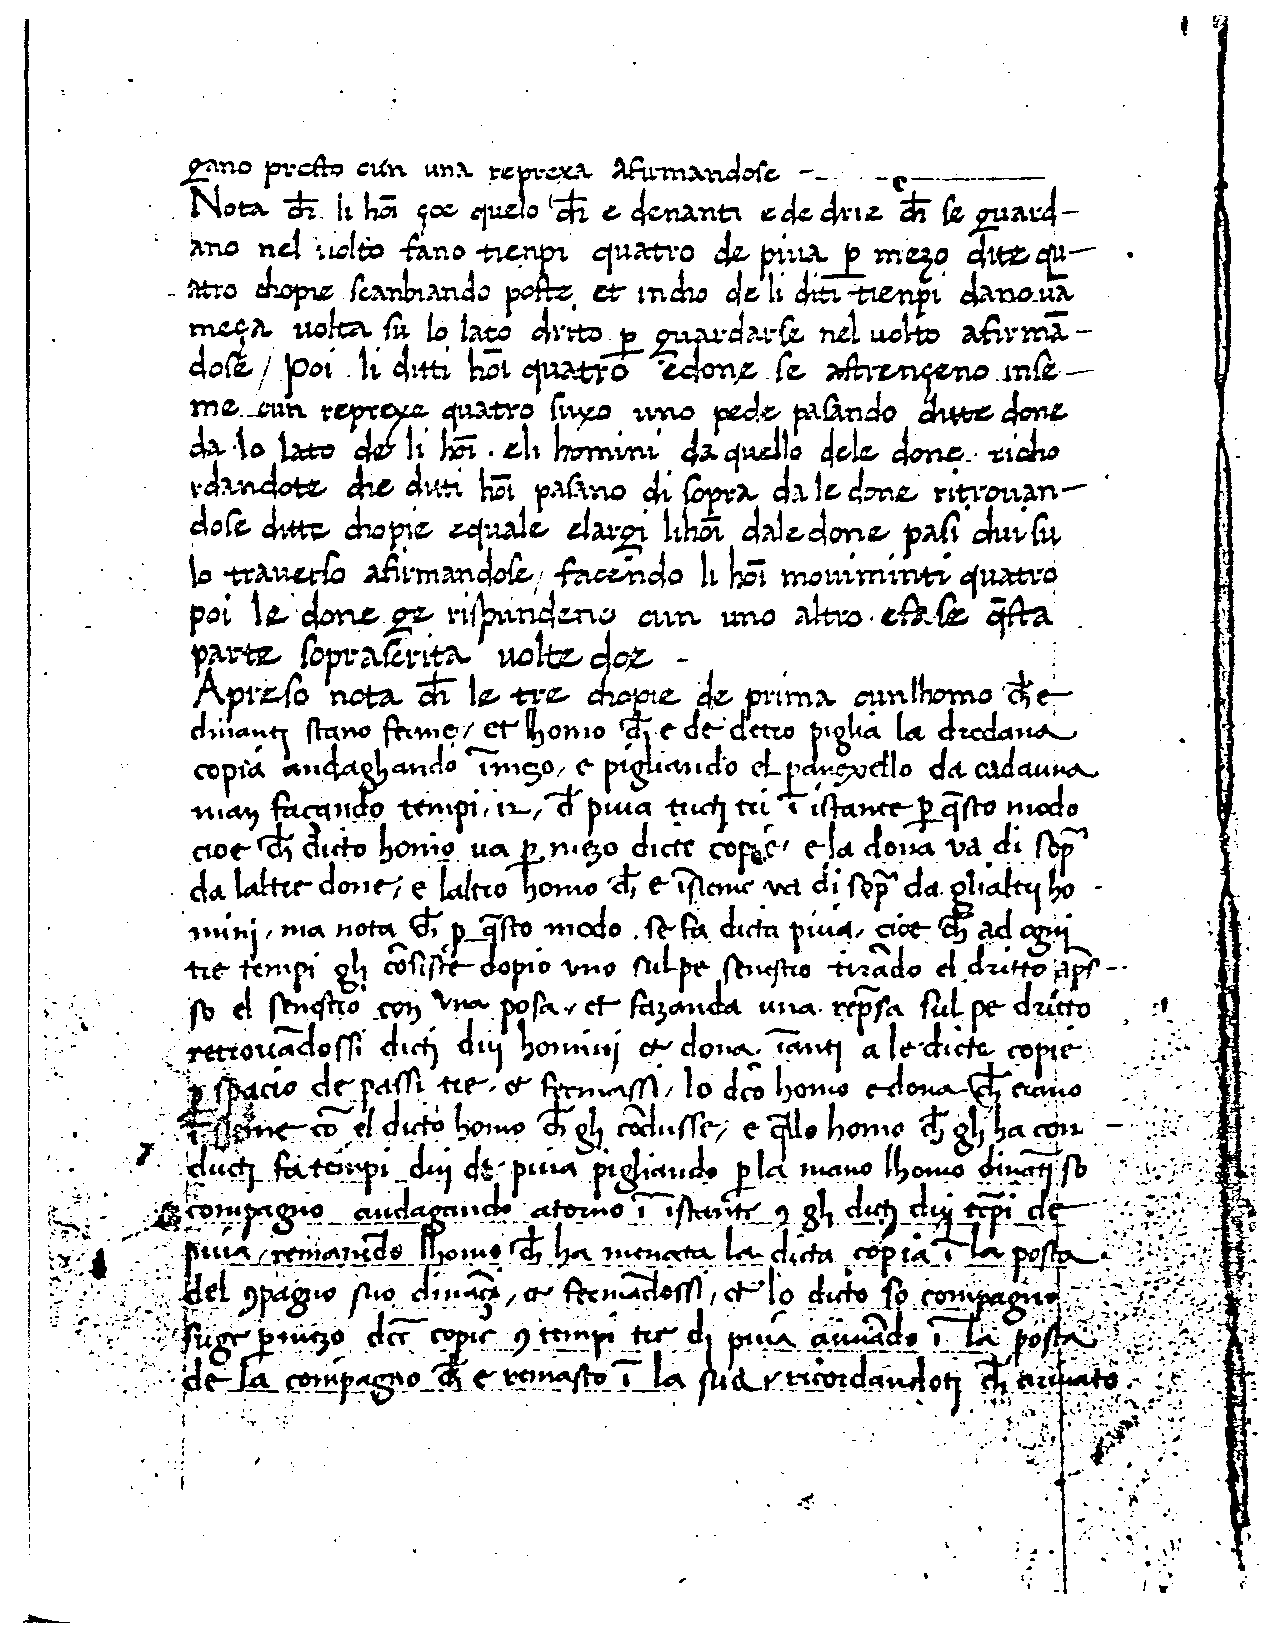 gano presto cun una reprexa afirmandose
Nota ch̄ li hōi çoe quelo ch̄ e denanti e de drie ch̄ se guard-
ano nel uolto fano tienpi quatro de piua ꝑ mezo dite qu-
atro chopie scanbiando poste, et indio de li diti tienpi dano uā
meça uolta su lo lato drito ꝑ guardarse nel uolto afirmā-
dose / Poi li ditti hōi quatro e done se astrençeno inse-
me cun reprexe quatro suxo uno pede pasando ditte done
da lo lato de li hōi · eli homini da quello dele done · richo
rdandote che diti hōi pasano di sopra da le done ritrouan-
dose ditte chopie equale elargi li hōi dale done pasi dui su
lo trauerso afirmandose, facendo li hōi mouiminti quatro
poi le done ge rispundeno cun uno altro · e fase q̄sta
parte soprascrita uolte doe -
Apreso nota ch̄ le tre chopie de prima cun lhomo ch̄ e
dinantj stano ferme / et lhomo ch̄ e de detro piglia la dredana
copia andaghando ī mezo, e pigliando el panexello da cadauna
man façando tempi · 12 / d̄ piua tutj tri ī istante ꝑ q̄sto modo
cioe ch̄ dicto homo ua ꝑ mezo dicte copie / e la dona va di sop̄
da laltre done / e laltro homo ch̄ e īsieme va di sop̄ da glialtrj ho -
minj, ma nota ch̄ ꝑ q̄sto modo se fa dicta piua, cioe ch̄ ad ognj
tre tempi glj cōsiste dopio vno sul pe senestro tirādo el dritto ap̄s-
so el senestro con vna posa, et fazando una rep̄sa sul pe dricto
retrouādossi dictj dui hominj et dona īanti a le dicte copie
ꝑ spacio de passi tre, et fermassi / lo dc̄o homo e dona ch̄ erano
īsieme cō el dicto homo ch̄ glj cōdusse / e q̄llo homo ch̄ glj ha con-
dutj fa tempi dui de piua pigliando ꝑ la mano lhomo dinātj so
compagno andagando atorno ī istante ꝯ glj dictj duj tēpi de
piua, remanēdo lhomo ch̄ ha menata la dicta copia ī la posta
del ꝯpagno suo dināçi, et fermādossi, et lo dicto so compagno
fuge ꝑ mezo dc̄e copie ꝯ tempi tre dj piua auiādo ī la posta
de la compagno ch̄ e remasto ī la sua, ricordandotj ch̄ ariuato